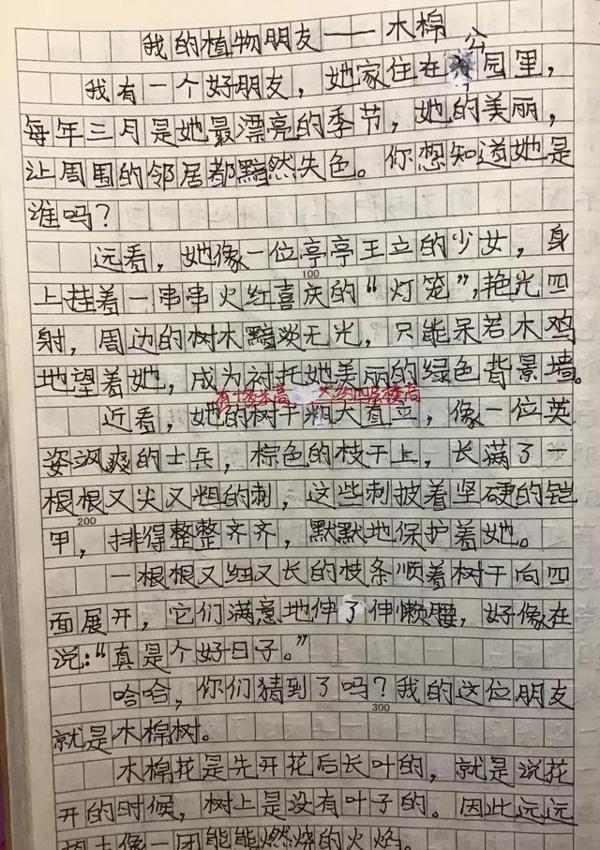 我的植物朋友——木棉
我有一个好朋友，她家住在公园里，
每年三月是她最漂亮的季节，她的美丽，
让周围的邻居都黯然失色。你想知道她是
谁吗？
远看，她像一位亭亭王立的少女，身
上挂着一串串火红喜庆的“灯笼”，艳光四
100
射，周边的树木黯淡无光，只能呆若木鸡
地望着她，成为衬托她美丽的绿色背景墙。
有十多米高 大约四层楼高
近看，她的树干粗大直立，像一位英
姿飒爽的士兵，棕色的枝干上，长满了一
根根又尖又粗的刺，这些刺披着坚硬的铠
200
甲，排得整整齐齐，默默地保护着她。
一根根又细又长的枝条顺着树干向四
面展开，它们满意地伸了伸懒腰，好像在
说：“真是个好日子。”
哈哈，你们猜到了吗？我的这位朋友
300
就是木棉树。
木棉花是先开花后长叶的，就是说花
开的时候，树上是没有叶子的。因此远远
像一团能能燃烧的火焰。